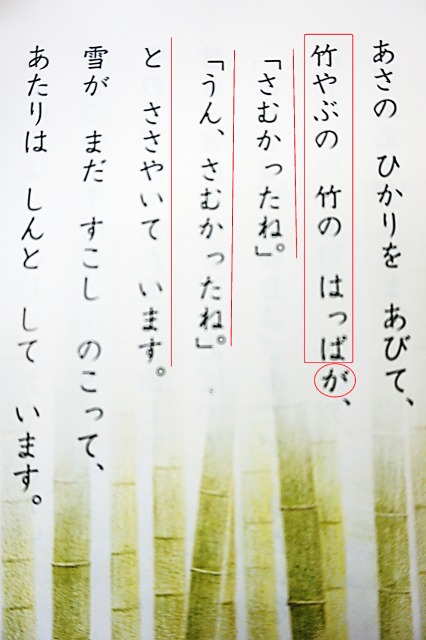 あさの ひかりを あびて、
竹やぶの 竹の はっぱが、
「さむかったね。」
「うん、さむかったね。」
と ささやいて います。
雪が まだ すこし のこって、
あたりは しんと して います。